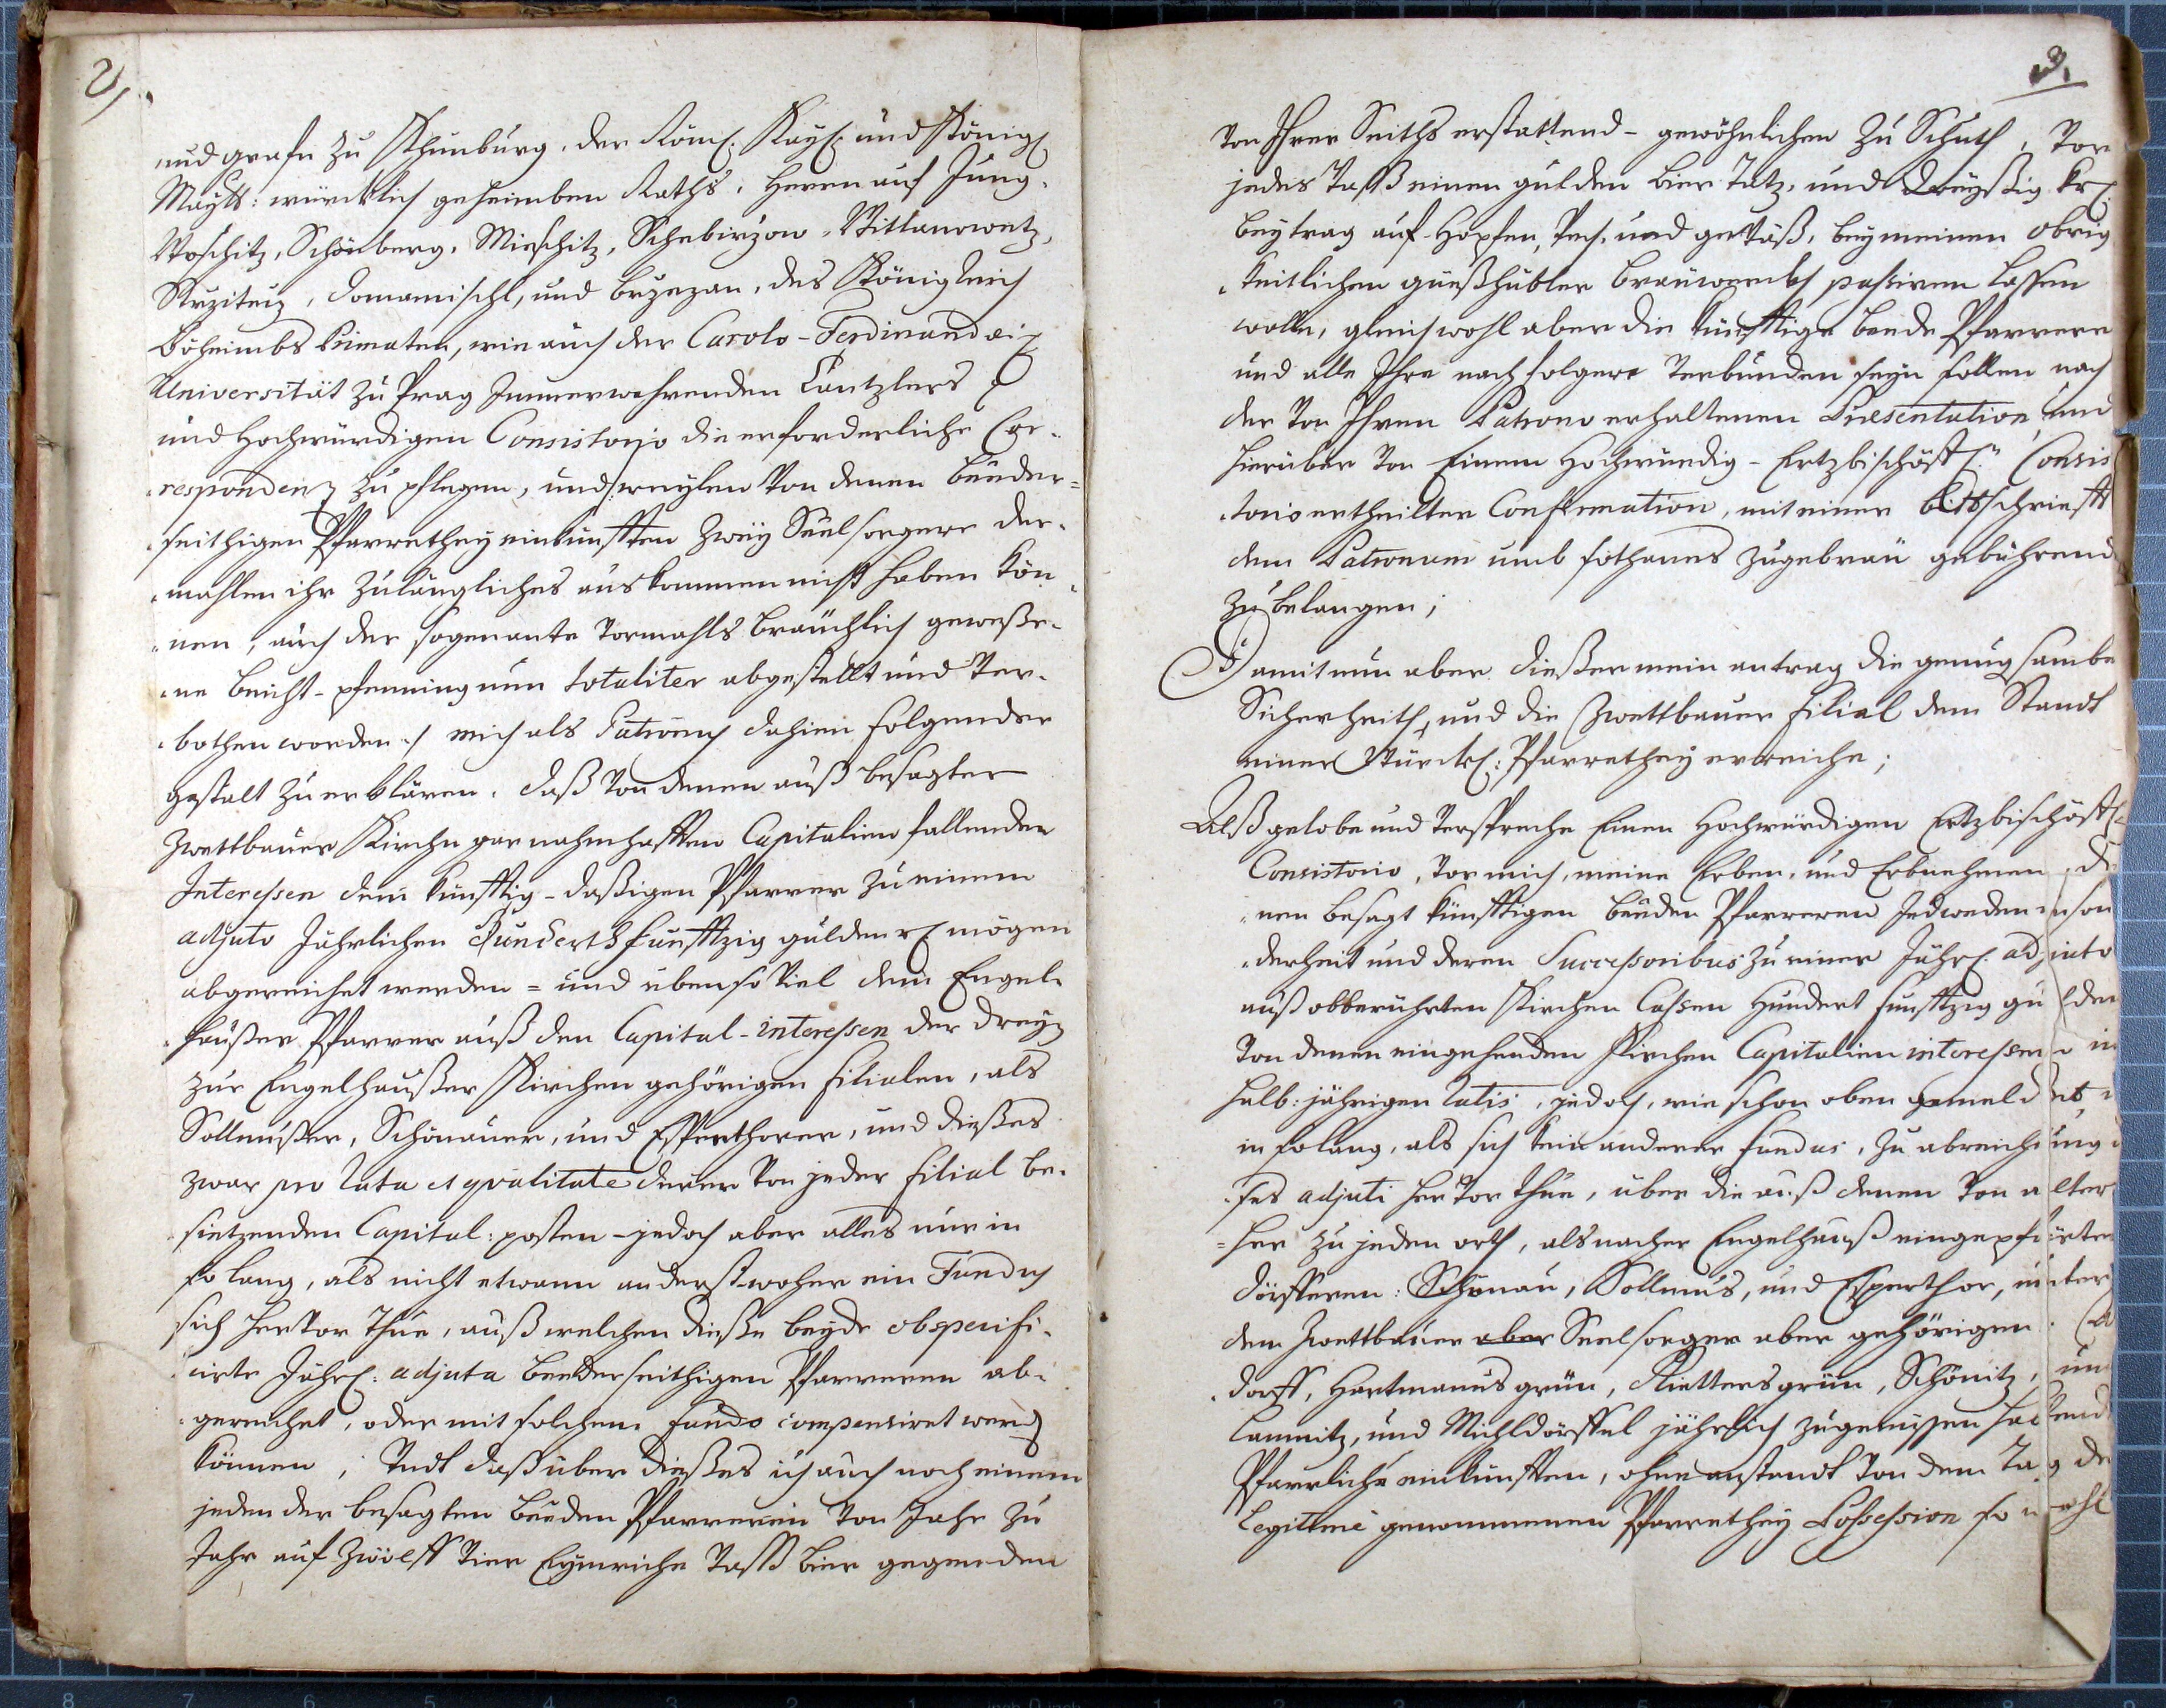 2/.
und grafn zu Khünburg, der Röm: Kay: und König:
Maytt: würcklich geheimben Raths, Herrn auf Jung-
Woschitz, Schönberg, Mieschitz, Schebirzow, Wittanowetz,
Strziteiz, Domamischl, und Brzezan, des Königreich
Böheimbs Primaten, wie auch der Carolo-Ferdinandeis
Universität zu Prag Immerwehrenden Cantzlers
und Hochwürdigen Consistorio die erforderliche Cor-
respondenz zu pflegen, und, weylen von denen beeder-
seithigen Pfarrethey einkunfften zwey Seelsorgere der-
mahlen ihr zulängliches auskommen nicht haben kön-
nen, auch der sogenante vormahls bräuchlich geweße-
ne beicht-pfenning nun totaliter abgestellt und ver-
bothen worden :/ mich als Patronus dahien folgender
gestalt zu erklären, daß von denen auß besagter
Zwettbauer Kirchn gar nahmhafften Capitalien fallenden
Interessen dem künfftig-daßigen Pfarrer zu einem
adjuto Jährlichen Hundert funfftzig gulden mögen
abgereichet werden = und ebensoviel dem Engel-
häußer Pfarrer auß den Capital-interessen der dreyen
zur Engelhaußer Kirchen gehörigen filialen, als
Sollmüßer, Schönauer, und Esperthorer, und dießes
zwar pro rata et qualitate derer von jeder filial be-
sietzenden Capital: posten - jedoch aber alles nur in
so lang, als nicht etwann anderst-woher ein Fundus
sich hervor thue, auß welchen dieße beyde obspecifi-
cirte Jährl: adjuta beederseithigen Pfarreren ab-
gereichet, oder mit solchem fundo compensiret werden
können, Undt daß über dießes ich auch noch einem
jeden der besagten beeden Pfarreren von Jahr zu
Jahr auf zwöelff vier Eymriche Vaß bier gegen den
3.
von Ihrer Seiths erstattend-gewöhnlichen zu Schuth, vor
jedes Vaß einen gulden bier Tatz, und dreyßig kr:
beytrag auf Hopfen, Pech, und gefäß, bey meinen obrig
keitlichen gießhübler breuwercks passiren lassen
wolle, gleichwohl aber die künfftige beede Pfarrere
und alle Ihre nachfolgere verbunden seyn sollen nach
der von Ihren Patrono erhaltenen Praesentation, und
hierüber von Einem Hochwürdig-Ertzbischöffl: Consis
torio ertheilter Confirmation, mit einer bittschriefft
dem Patronum umb sothanes zugebräu gebührend
zu belangen;
Damit nun aber dießer mein antrag die genugsambe
Sicherheith, und die Zwettbauer filial dem Standt
einer Würckl: Pfarrethey erreiche;
Alß gelobe und verspreche Einen Hochwürdigen Ertzbischöffl:
Consistorio, vor mich, meine Erben, und Erbnehmen, de
nen besagt künfftigen beeden Pfarreren Jedweden inson
derheit und deren Successoribus zu einer Jährl: adjuto
auß obberührten Kirchen Cassen Hundert funfftzig gulden
von denen eingehenden Kirchen Capitalien interessen in
halb: jährigen ratis, jedoch, wie schon oben gemeldet,
in solang, als sich kein anderer fundus, zu abreichung
ses adjuti hervor thue, über die auß denen von alter
her zu jeden orth, als nacher Engelhauß eingepfarten
dörfferen: Schönau, Sollmus, und Esperthor,
dem Zwettbauer aber Seelsorger aber gehörigen
dorff, Hartmanns grün, Riettersgrün, Schönitz, und
Lamnitz, und Mühldörffel jährlich zugenüssen habend
Pfarrliche einkunfften, ohne anstandt von dem Tag de
legitimè genommenen Pfarrethey Possession so wohl